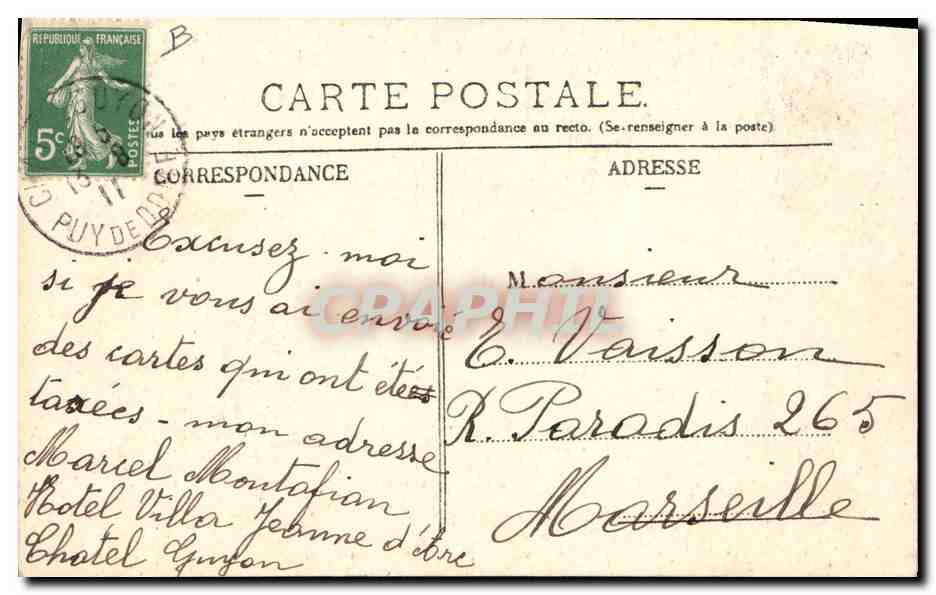 B
REPUBLIQUE FRANÇAISE
5c
POSTES
PUY DE DOME
CARTE POSTALE.
us les pays étrangers n'acceptent pas la correspondance au recto. (Se renseigner à la poste)
CORRESPONDANCE
ADRESSE
Excusez moi
si je vous ai envoyé
des cartes qui ont étés
taxées - mon adresse
Marcel Montafian
Hotel Villa Jeanne d'Arc
Chatel Guyon
Monsieur
E. Vaisson
R. Paradis 265
Marseille
CPAPHIL